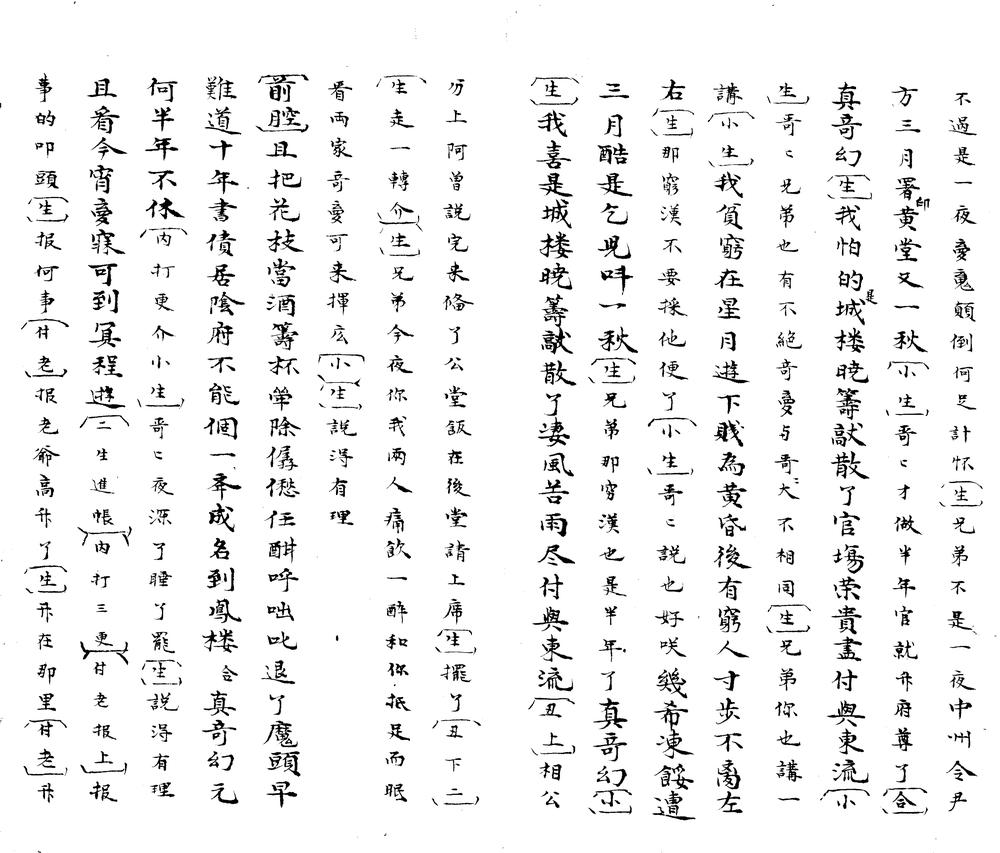 不過是一夜憂鬼顛倒何足計怀生兄弟不是一夜中州令尹
方三月署印黄堂又一秋小生哥〻才做半年官就升府尊了合
真奇幻生我怕的是城楼晓籌敲散了官塲荣貴盡付與東流小
生哥〻兄弟也有不絕奇憂与哥〻大不相同生兄弟你也講一
講小生我貧窮在星月遊下賤為黄昏後有窮人寸步不离左
右生那窮漢不要採他便了小生哥〻説也好咲幾希凍餒遭
三月酷是乞児呌一秋生兄弟那穷漢也是半年了真奇幻小
生我喜是城楼晓籌敲散了淒風苦雨尽付與東流丑上相公
刃上阿曽説完来俻了公堂飯在後堂請上席生擺了丑下二
生走一轉介生兄弟今夜你我两人痛飲一醉和你抵足而眠
看两家奇憂可来揮庅小生説得有理
前腔且把花枝當酒籌杯箏除僝僽任酣呼咄叱退了魔頭早
難道十年書債居陰府不能個一夲成名到鳳楼合真奇幻元
何半年不休内打更介小生哥〻夜深了睡了罷生説得有理
且看今宵憂寐可到冥程遊二生進帳内打三更甘老报上报
事的叩頭生报何事甘老报老爺高升了生升在那里甘老升